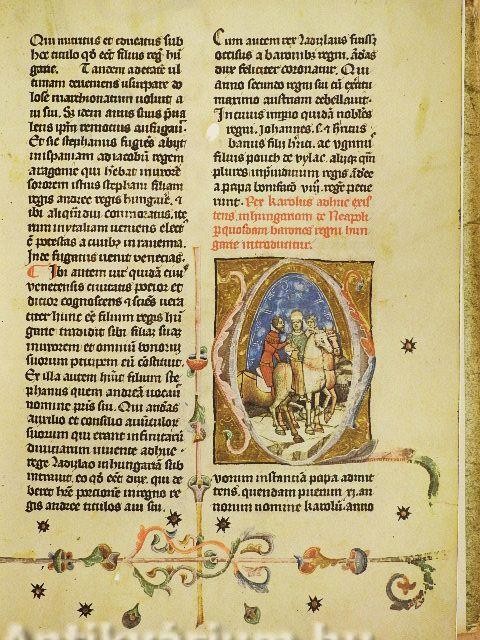 Qui nutritus et educatus sub
hoc titulo qď eēt filius regis hū
garie. Tandem adetatē ul
timam deueniens usurpare do
lose marchionatum uoluit a
ui sui. Sꝫ idem auus suus preua
lens ipm remotius aufugaui.
Et sic stephanus fugies abijt
inispaniam ad iacobū regem
aragonie qui hēbat inuxorē
sororem istius stephani filiam
regis andree regis hungarie. ⁊
ibi aliqmdiu conmoratus, ite
rum initaliam ueniens electꝰ
ē potestas a ciuibꝫ in rauenna.
Inde fugatus uenit uenecias.
Ibi autem uir quidā ciuis
uenetensis ciuitatis potior et
ditior cognoscens ⁊ sciēs uera
citer hunc eē filium regis hū
garie tradidit sibi filiā suam
inuxorem et omniū bonorū
suorum principem eū cōstituit.
Ex illa autem huit filium ste
phanus quem andreā uocauit
nomine patris sui. Qui andreas
auxilio et consilio auunculorū
suorum qui erant infinitarū
diuitiarum uiuente adhuc
rege ladizlao inhungariā sub
intrauit. eo qď eēt dux. qui de
beret hēre portionē inregno re
gis andree titulos aui sui.
Cum autem rex ladizlaus fuisset
occisus a baronibꝫ regni. andreas
dux feliciter coronatur. Qui
anno secundo regni sui cū exercitu
maximo austriam debellauit.
Incuius imperio quidā nobiles
regni. Johannes. ⁊ henricus
banus filij herrici. ac vgrinus
filius pouch de vylac. alijqꝫ quā
plures inpreiudicium regis andree
a papa bonifacio viij. regem petie
runt. Rex Karolus adhuc exis
tens. in hungariam de Neapoli
per quosdam barones regni hun
garie introducitur.
uorum instanciā papa admit
tens. quendam puerum xj. an
norum nomine karolū. anno
Antikvárium.hu